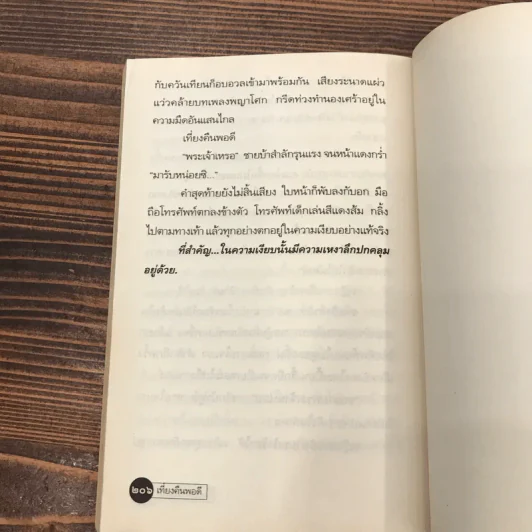 กับควันเทียนก็อบอวลเข้ามาพร้อมกัน เสียงระนาดแผ่ว
แว่วคล้ายบทเพลงพญาโศก กรีดท่วงทำนองเศร้าอยู่ใน
ความมืดอันแสนไกล
เที่ยงคืนพอดี
“พระเจ้าเหรอ” ชายบ้าสำลักรุนแรง จนหน้าแดงก่ำ
“มารับหน่อยซิ...”
คำสุดท้ายยังไม่สิ้นเสียง ใบหน้าก็พับลงกับอก มือ
ถือโทรศัพท์ตกลงข้างตัว โทรศัพท์เด็กเล่นสีแดงส้ม กลิ้ง
ไปตามทางเท้า แล้วทุกอย่างตกอยู่ในความเงียบอย่างแท้จริง
ที่สำคัญ...ในความเงียบนั้นมีความเหงาลึกปกคลุม
อยู่ด้วย.
๒๐๖ เที่ยงคืนพอดี